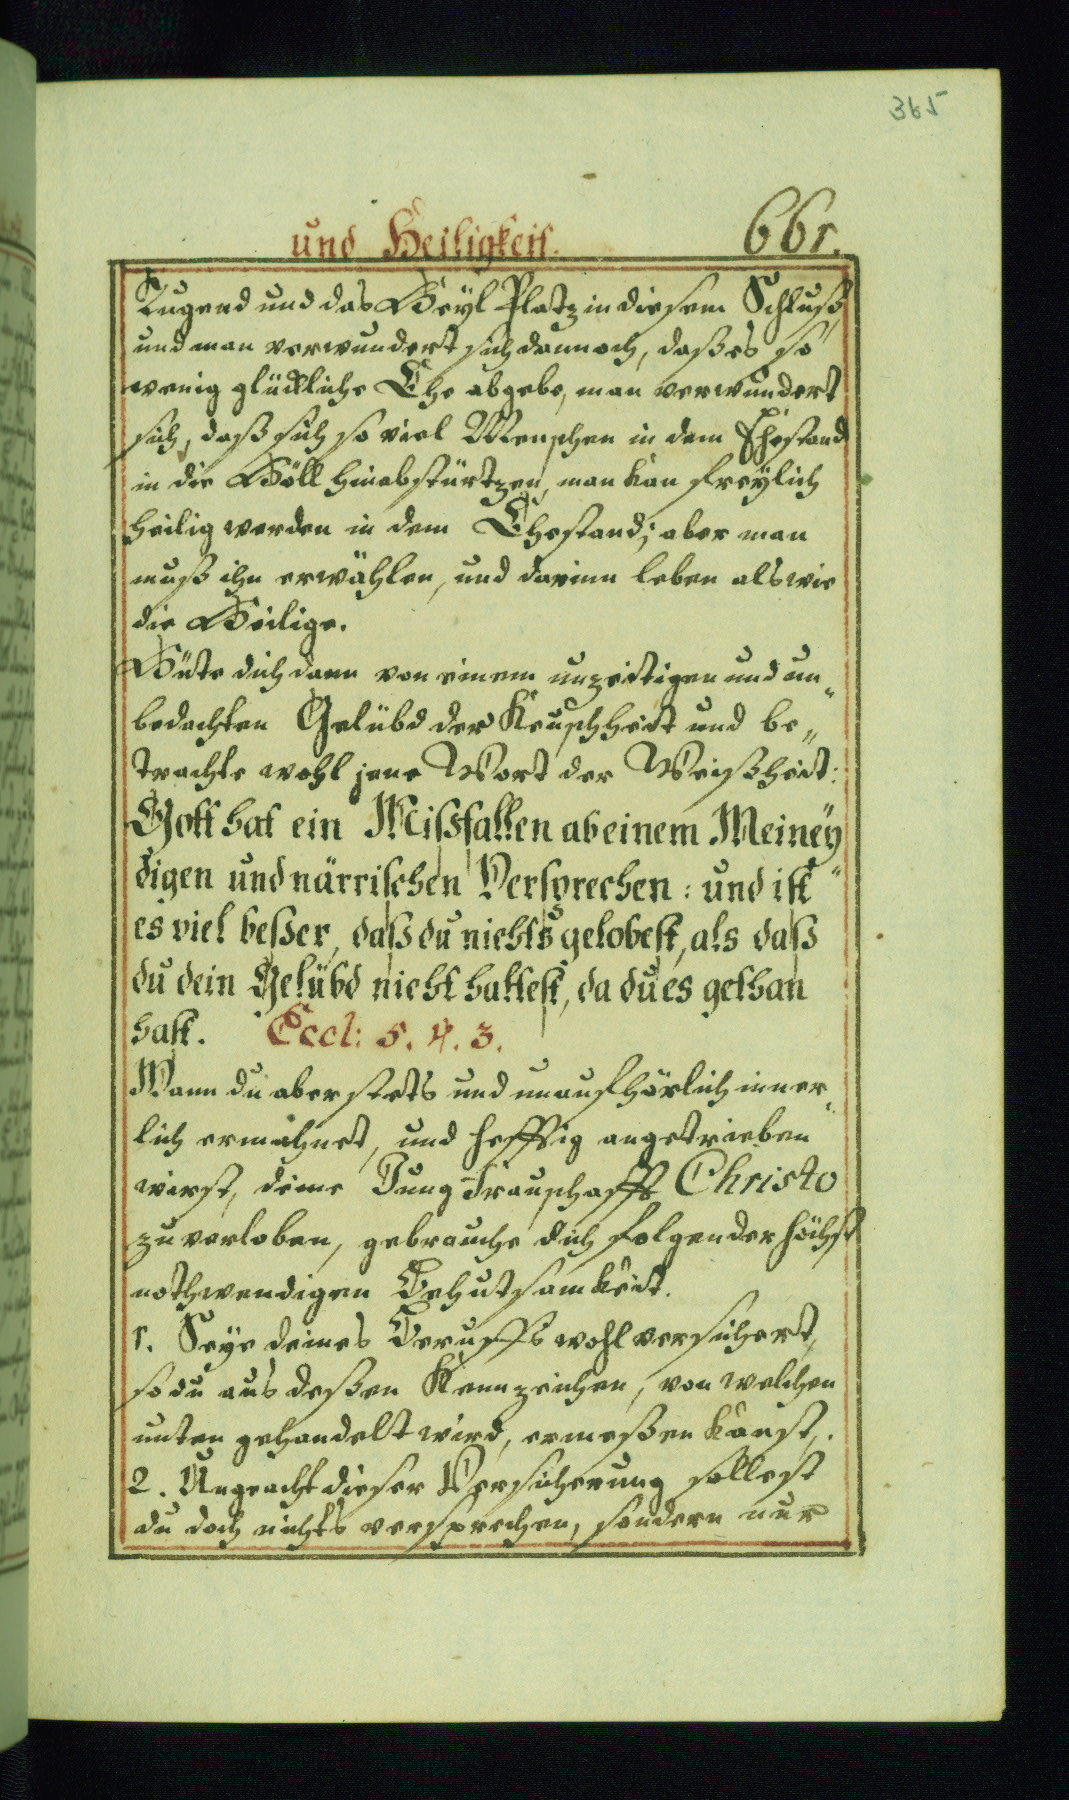 365
und Heiligkeit. 661.
Tugend und das Heyl Platz in diesem Schluss,
und man verwundert sich dannoch, daß es so
wenig glückliche Ehe abgebe, man verwundert
sich, daß sich so viel Menschen in dem Ehestand
in die Höll hinabstürtzen, man kan freylich
heilig werden in dem Ehestand; aber man
muß ihn erwählen, und darinn leben als wie
die Heilige.
Hüte dich dann von einem unzeitigen und un„
bedachten Gelübd der Keuschheit und be„
trachte wohl jene Wort der Weißheit:
Gott hat ein Mißfallen ab einem Meiney„
digen und närrischen Versprechen: und ist
es viel beßer, daß du nichts gelobest, als daß
du dein Gelübd nicht haltest, da du es gethan
hast. Eccl: 5. 4. 3.
Wann du aber stets und unaufhörlich inner„
lich ermahnet, und hefftig angetrieben
wirst, deine Jungfrauschafft Christo
zu verloben, gebrauche dich folgender höchst
nothwendigen Behutsamkeit.
1. Seye deines Beruffs wohl versichert,
so du aus deßen Kennzeichen, von welchen
unten gehandelt wird, ermeßen kanst.
2. Ungeacht dieser Versicherung sollest
du doch nichts versprechen, sondern nur